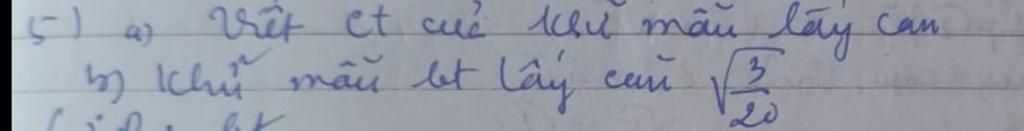 5) a) Viết ct của khử mẫu lấy căn
b) Khử mẫu bt lấy căn √(3/20)